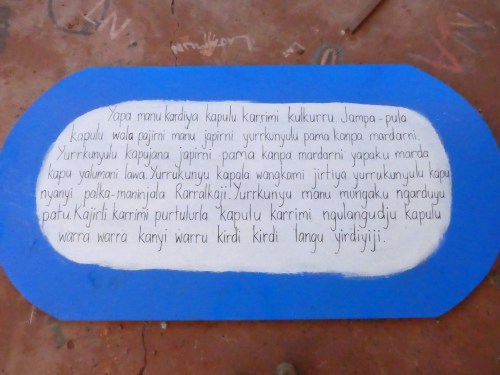 Yapa manu kardiya kapulu karrimi kulkurru Jampa-pula
kapulu wala pajirni manu japirni yurrkunyulu pama kanpa mardarni.
Yurrkunyulu kapujana japirni pama kanpa mardarni yapaku marda
kapu yalumani lawa. Yurrukunyu kapala wangkami jirtiya yurrukunyulu kapu
nyanyi palka-maninjala Rarralkaji. Yurrkunyu manu mungaku ngarduyu
patu. Kajirli karrimi purtulurla kapulu karrimi ngulangudju kapulu
warra warra kanyi warru kirdi kirdi langu yirdiyiji.